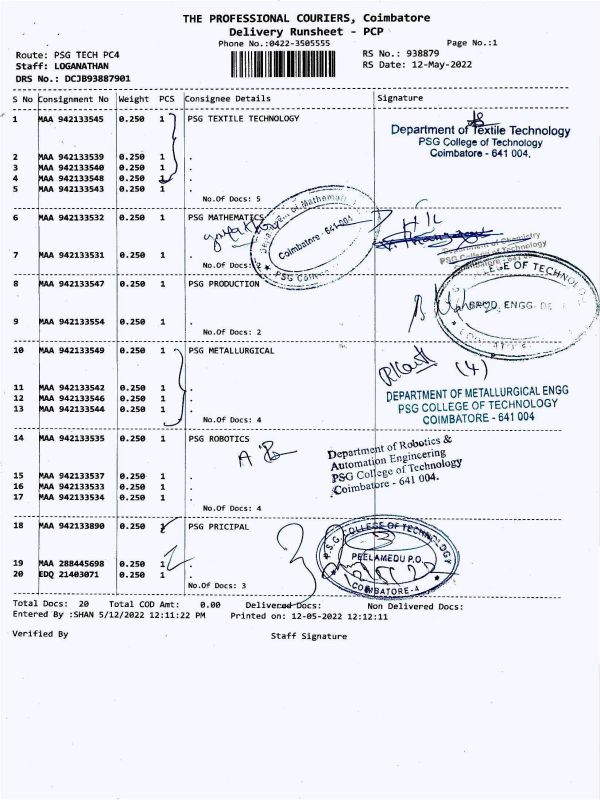 THE PROFESSIONAL COURIERS, Coimbatore
Delivery Runsheet - PCP
Phone No.:0422-3505555
Page No.:1
Route: PSG TECH PC4
RS No.: 938879
Staff: LOGANATHAN
RS Date: 12-May-2022
DRS No.: DCJB93887901
S No Consignment No Weight PCS Consignee Details Signature
1 MAA 942133545 0.250 1 PSG TEXTILE TECHNOLOGY
Department of Textile Technology
PSG College of Technology
Coimbatore - 641 004.
2 MAA 942133539 0.250 1 .
3 MAA 942133540 0.250 1 .
4 MAA 942133548 0.250 1 .
5 MAA 942133543 0.250 1 .
No.Of Docs: 5
6 MAA 942133532 0.250 1 PSG MATHEMATICS
Coimbatore - 641 004
PSG College
Department of Chemistry
PSG College of Technology
7 MAA 942133531 0.250 1 .
No.Of Docs: 2
8 MAA 942133547 0.250 1 PSG PRODUCTION
COLLEGE OF TECHNOLOGY
PROD. ENGG. DE
9 MAA 942133554 0.250 1 .
No.Of Docs: 2
10 MAA 942133549 0.250 1 PSG METALLURGICAL
(4)
11 MAA 942133542 0.250 1 .
12 MAA 942133546 0.250 1 .
13 MAA 942133544 0.250 1 .
No.Of Docs: 4
DEPARTMENT OF METALLURGICAL ENGG
PSG COLLEGE OF TECHNOLOGY
COIMBATORE - 641 004
14 MAA 942133535 0.250 1 PSG ROBOTICS
Department of Robotics &
Automation Engineering
PSG College of Technology
Coimbatore - 641 004.
15 MAA 942133537 0.250 1 .
16 MAA 942133533 0.250 1 .
17 MAA 942133534 0.250 1 .
No.Of Docs: 4
18 MAA 942133890 0.250 1 PSG PRICIPAL
P.S.G. COLLEGE OF TECHNOLOGY
PEELAMEDU P.O.
COIMBATORE-4
3
19 MAA 288445698 0.250 1 .
20 EDQ 21403071 0.250 1 .
No.Of Docs: 3
Total Docs: 20 Total COD Amt: 0.00 Delivered Docs: Non Delivered Docs:
Entered By :SHAN 5/12/2022 12:11:22 PM Printed on: 12-05-2022 12:12:11
Verified By
Staff Signature